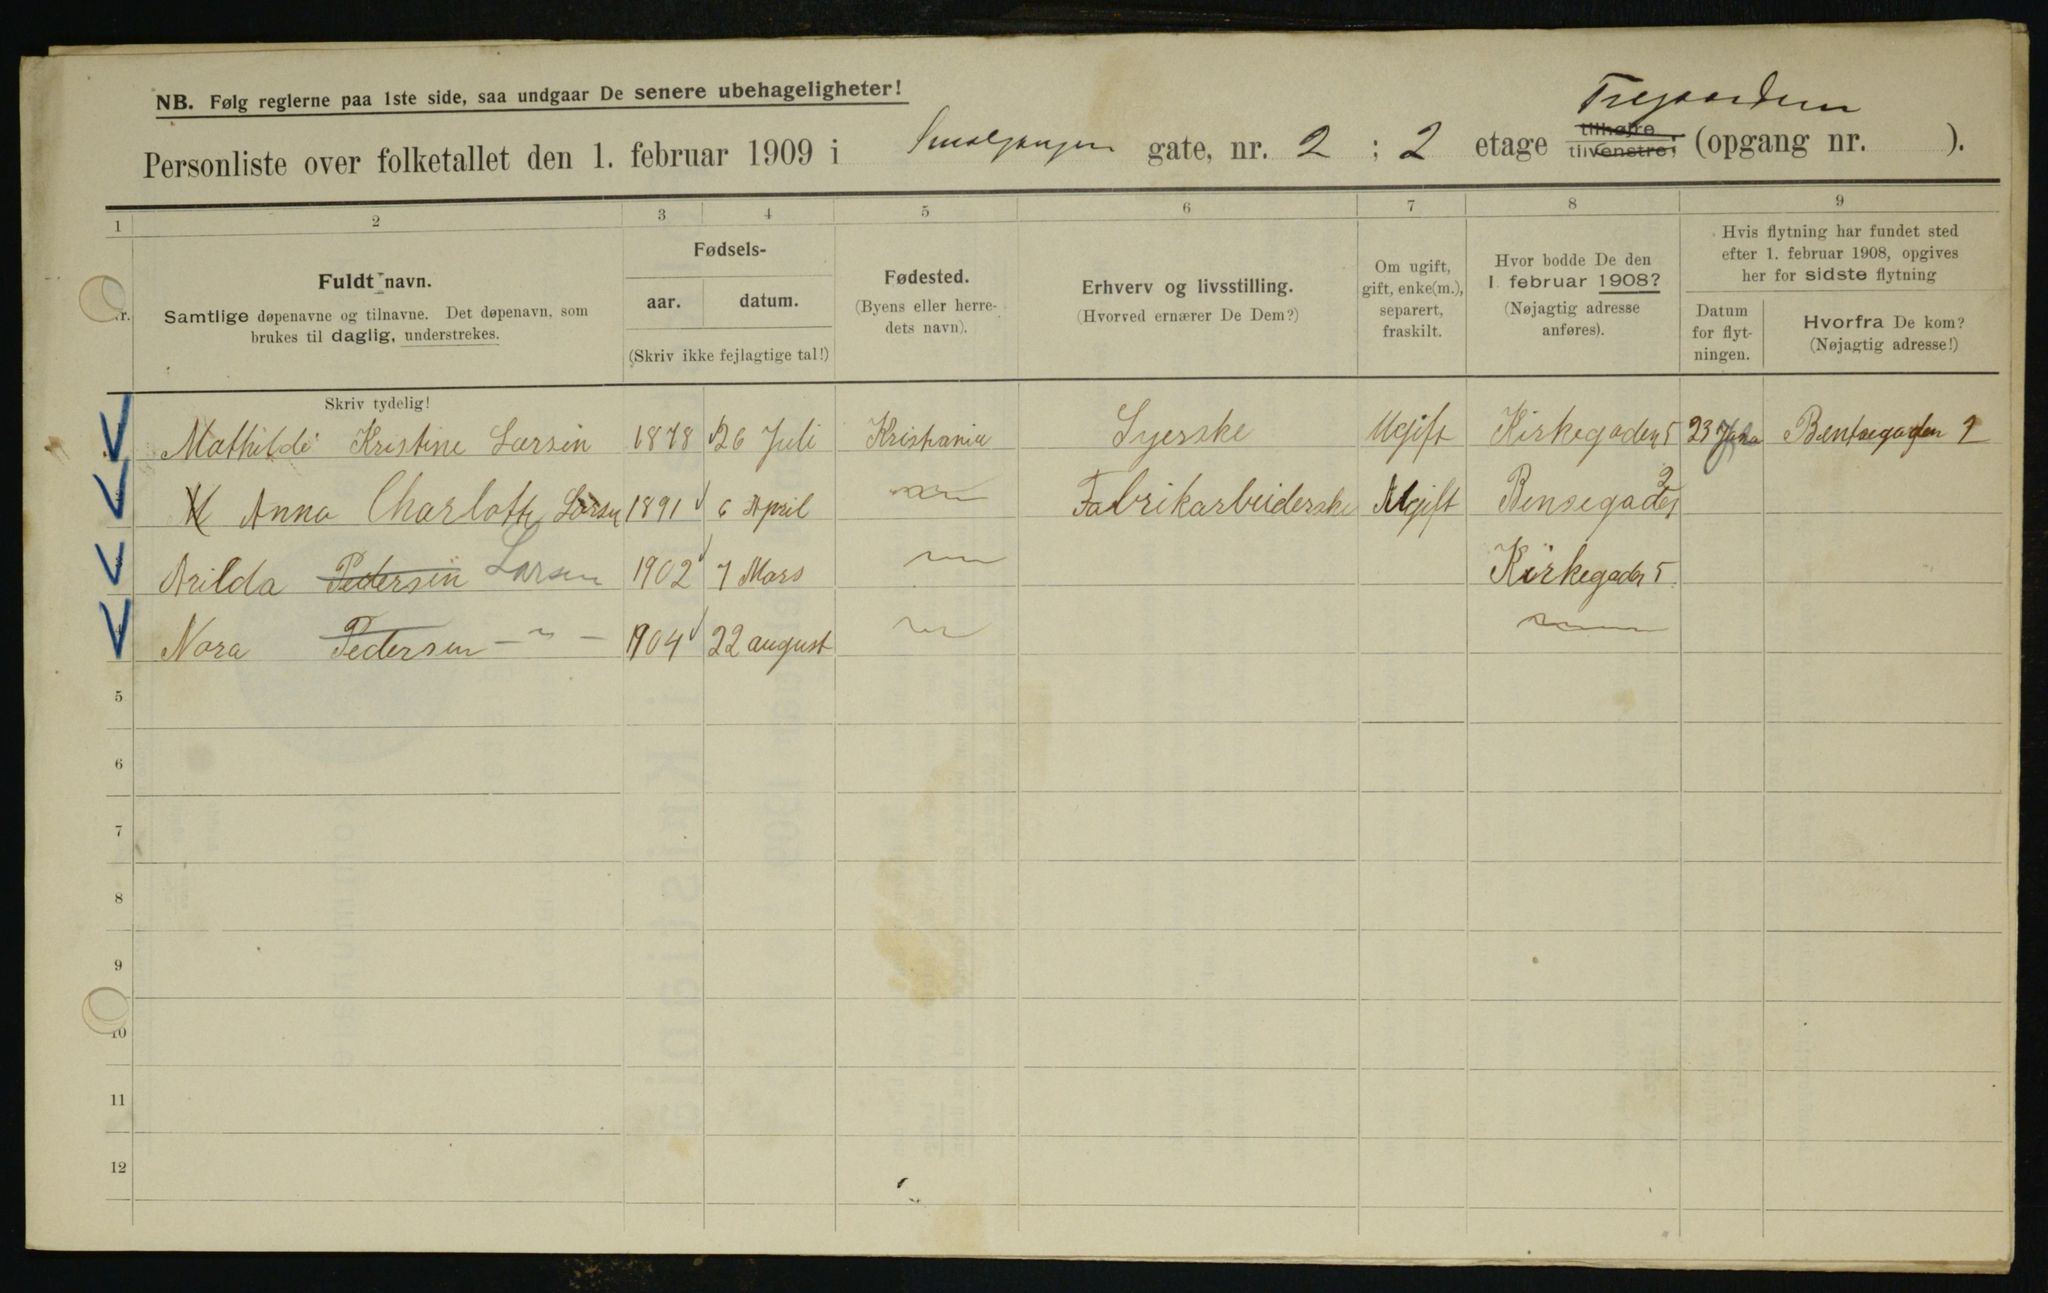 NB. Følg reglerne paa 1ste side, saa undgaar De senere ubehageligheter!
Tregaarden
Personliste over folketallet den 1. februar 1909 i Smalgangen gate, nr. 2 ; 2 etage tilhøire tilvenstre; (opgang nr. ).
1 2 3 4 5 6 7 8 9
Nr.
Fuldt navn.
Samtlige døpenavne og tilnavne. Det døpenavn, som
brukes til daglig, understrekes.
Skriv tydelig!
Fødsels-
aar. datum.
(Skriv ikke fejlagtige tal!)
Fødested.
(Byens eller herre-
dets navn).
Erhverv og livsstilling.
(Hvorved ernærer De Dem?)
Om ugift,
gift, enke(m.),
separert,
fraskilt.
Hvor bodde De den
1. februar 1908?
(Nøjagtig adresse
anføres).
Hvis flytning har fundet sted
efter 1. februar 1908, opgives
her for sidste flytning
Datum
for flyt-
ningen.
Hvorfra De kom?
(Nøjagtig adresse!)
Mathilde Kristine Larsen 1878 26 Juli Kristiania Syerske Ugift Kirkegaden 5 23 Bentsegaden 2
Anna Charlotte Larsen 1891 6 April Fabrikarbeiderske Ugift Bensegaden 2
Arilda Pedersen Larsen 1902 7 Mars Kirkegaden 5
Nora Pedersen — " — 1904 22 august
5
6
7
8
9
10
11
12